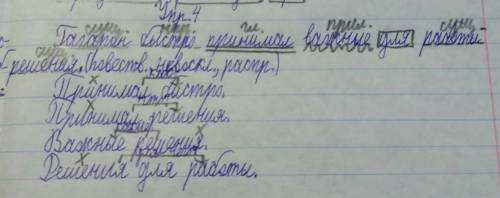 Упр.4
сущ. нар. гл. прил. сущ.
Гагарин быстро принимал важные для работы
сущ.
решения. (повеств., невоскл., распр.)
как?
Принимал быстро.
что?
Принимал решения.
какие?
Важные решения.
Решения для работы.